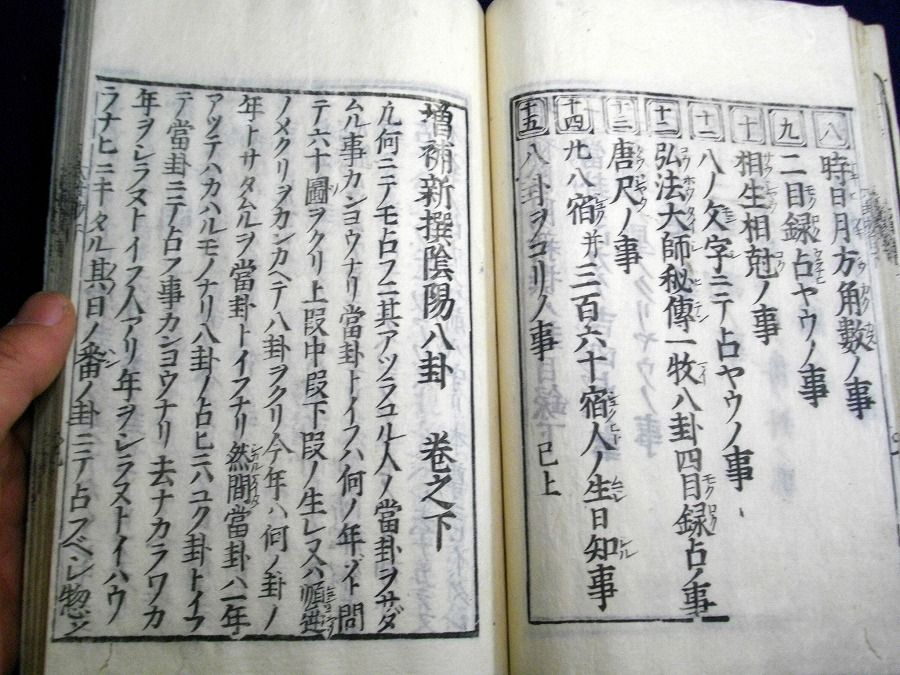 八 時日月方角數ノ事
九 二目録占ヤウノ事
十 相生相尅ノ事
十一 八ノ文字ニテ占ヤウノ事
十二 弘法大師秘傳一牧八卦四目録占ノ事
十三 唐尺ノ事
十四 廿八宿并三百六十宿人ノ生日知事
十五 八卦ヲコリノ事 已上
増補新撰陰陽八卦 巻之下
凡何ニテモ占フニ其アツラユル人ノ當卦ヲサダ
ムル事カンヨウナリ當卦トイフハ何ノ年ゾト問
テ六十圖ヲクリ上段中段下段ノ生レ又ハ順逆
ノメクリヲカンカヘテ八卦ヲクリ今年ハ何ノ卦ノ
年トサタムルヲ當卦トイフナリ然間當卦ハ一年
アツテハカハルモノナリ八卦ノ占ヒニハユク卦トイフ
テ當卦ニテ占フ事カンヨウナリ去ナカラワカ
年ヲシラヌトイフ人アリ年ヲシラヌトイハヾウ
ラナヒニキタル其日ノ番ノ卦ニテ占フベシ惣シ